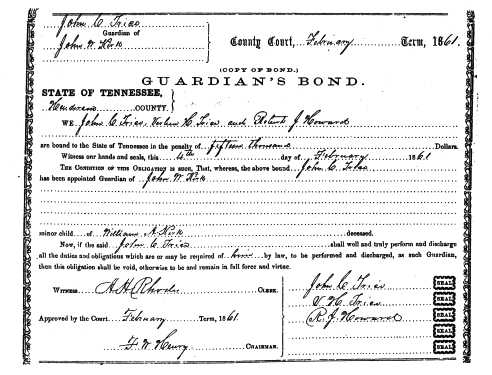 John C Tries
Guardian of
John W Kirk
County Court, February Term, 1861.
(COPY OF BOND.)
GUARDIAN'S BOND.
STATE OF TENNESSEE,
COUNTY.
WE John C Tries, H Tries and Robert J Howard
are bound to the State of Tennessee in the penalty of fifteen thousand Dollars.
Witness our hands and seals, this 4th day of February 1861
THE CONDITION OF THIS OBLIGATION IS SUCH, That, whereas, the above bound John C Tries
has been appointed Guardian of John W Kirk
minor child of William A Kirk deceased.
Now, if the said John C Tries shall well and truly perform and discharge
all the duties and obligations which are or may be required of him by law, to be performed and discharged, as such Guardian,
then this obligation shall be void, otherwise to be and remain in full force and virtue.
WITNESS, A H Rhodes CLERK.
John C Tries SEAL
V H Tries SEAL
Approved by the Court, February Term, 1861
R. J. Howard SEAL
SEAL
F W Henry CHAIRMAN.
SEAL